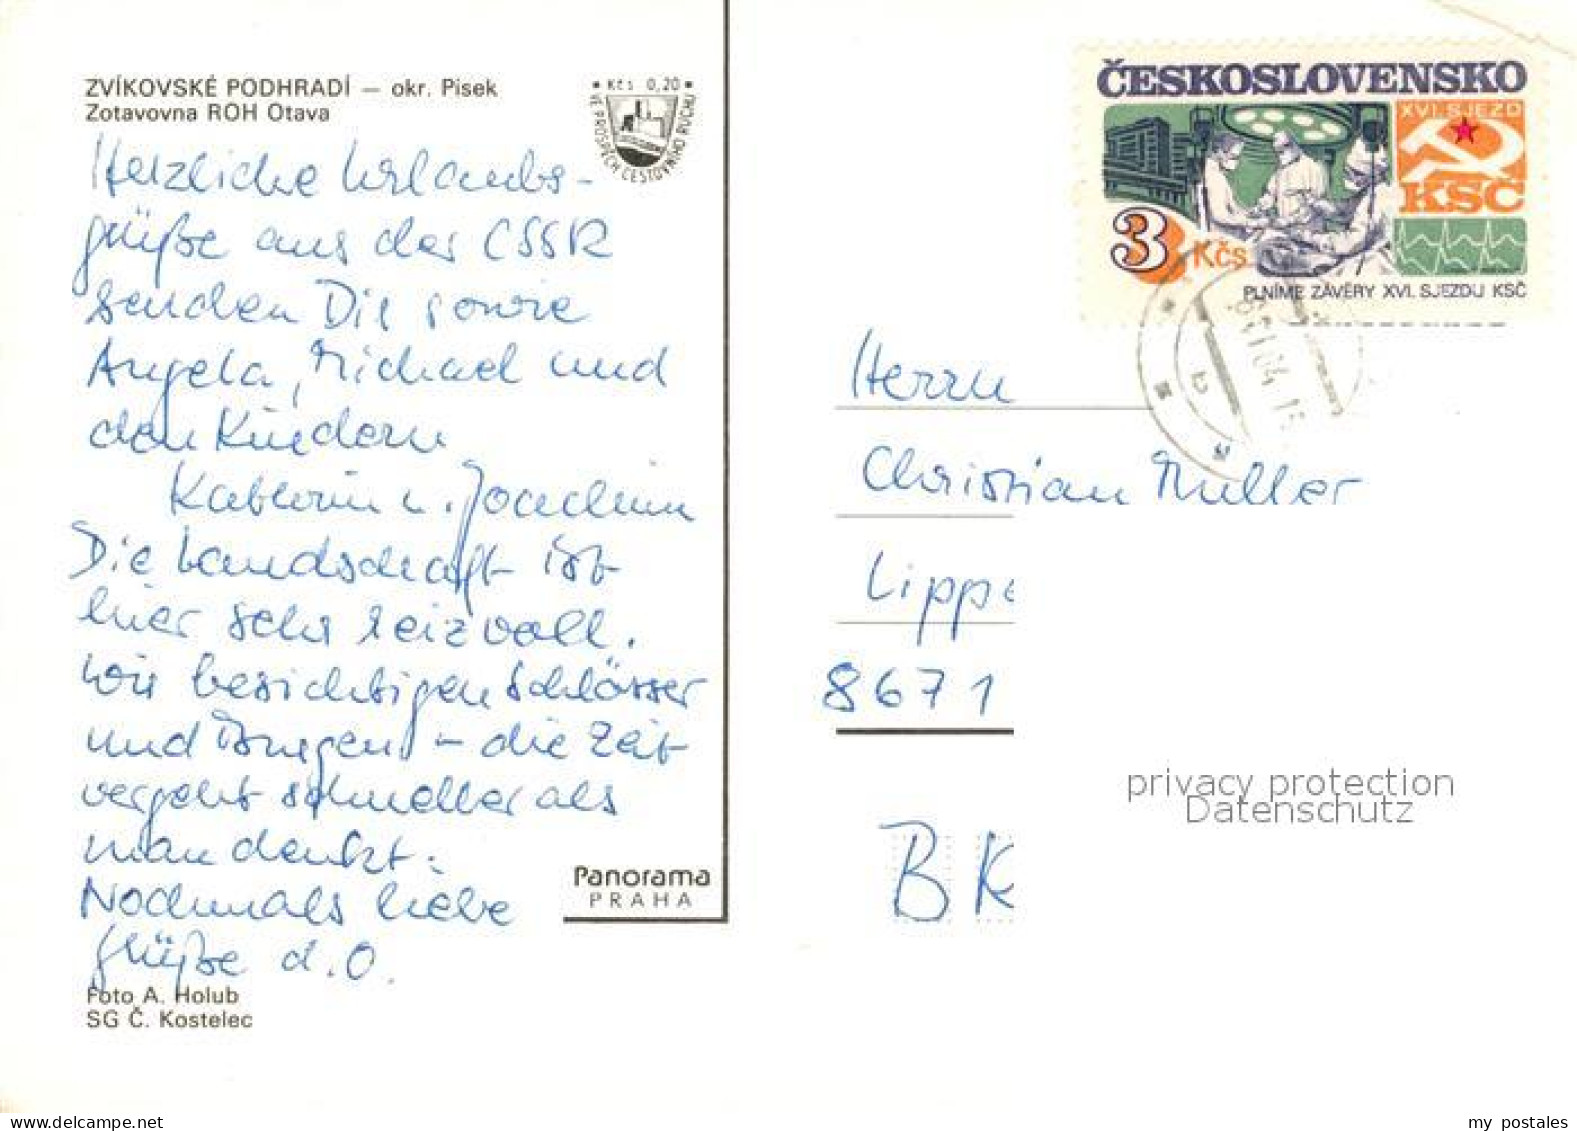 ZVÍKOVSKÉ PODHRADÍ — okr. Písek
Zotavovna ROH Otava
• Kčs 0,20 •
VE PROSPĚCH CESTOVNÍHO RUCHU
Herzliche Urlaubs-
grüße aus der CSSR
senden Dir sowie
Angela, Michael und
den Kindern
Kathrin u. Joachim
Die Landschaft ist
hier sehr reizvoll.
Wir besichtigen Schlösser
und Burgen – die Zeit
vergeht schneller als
man denkt.
Nochmals liebe
Grüße d. O.
Foto A. Holub
SG Č. Kostelec
Panorama
PRAHA
ČESKOSLOVENSKO
XVI. SJEZD
KSČ
3 Kčs
PLNÍME ZÁVĚRY XVI. SJEZDU KSČ
Herrn
Christian Müller
Lippe
8671
BR
privacy protection
Datenschutz
my postales